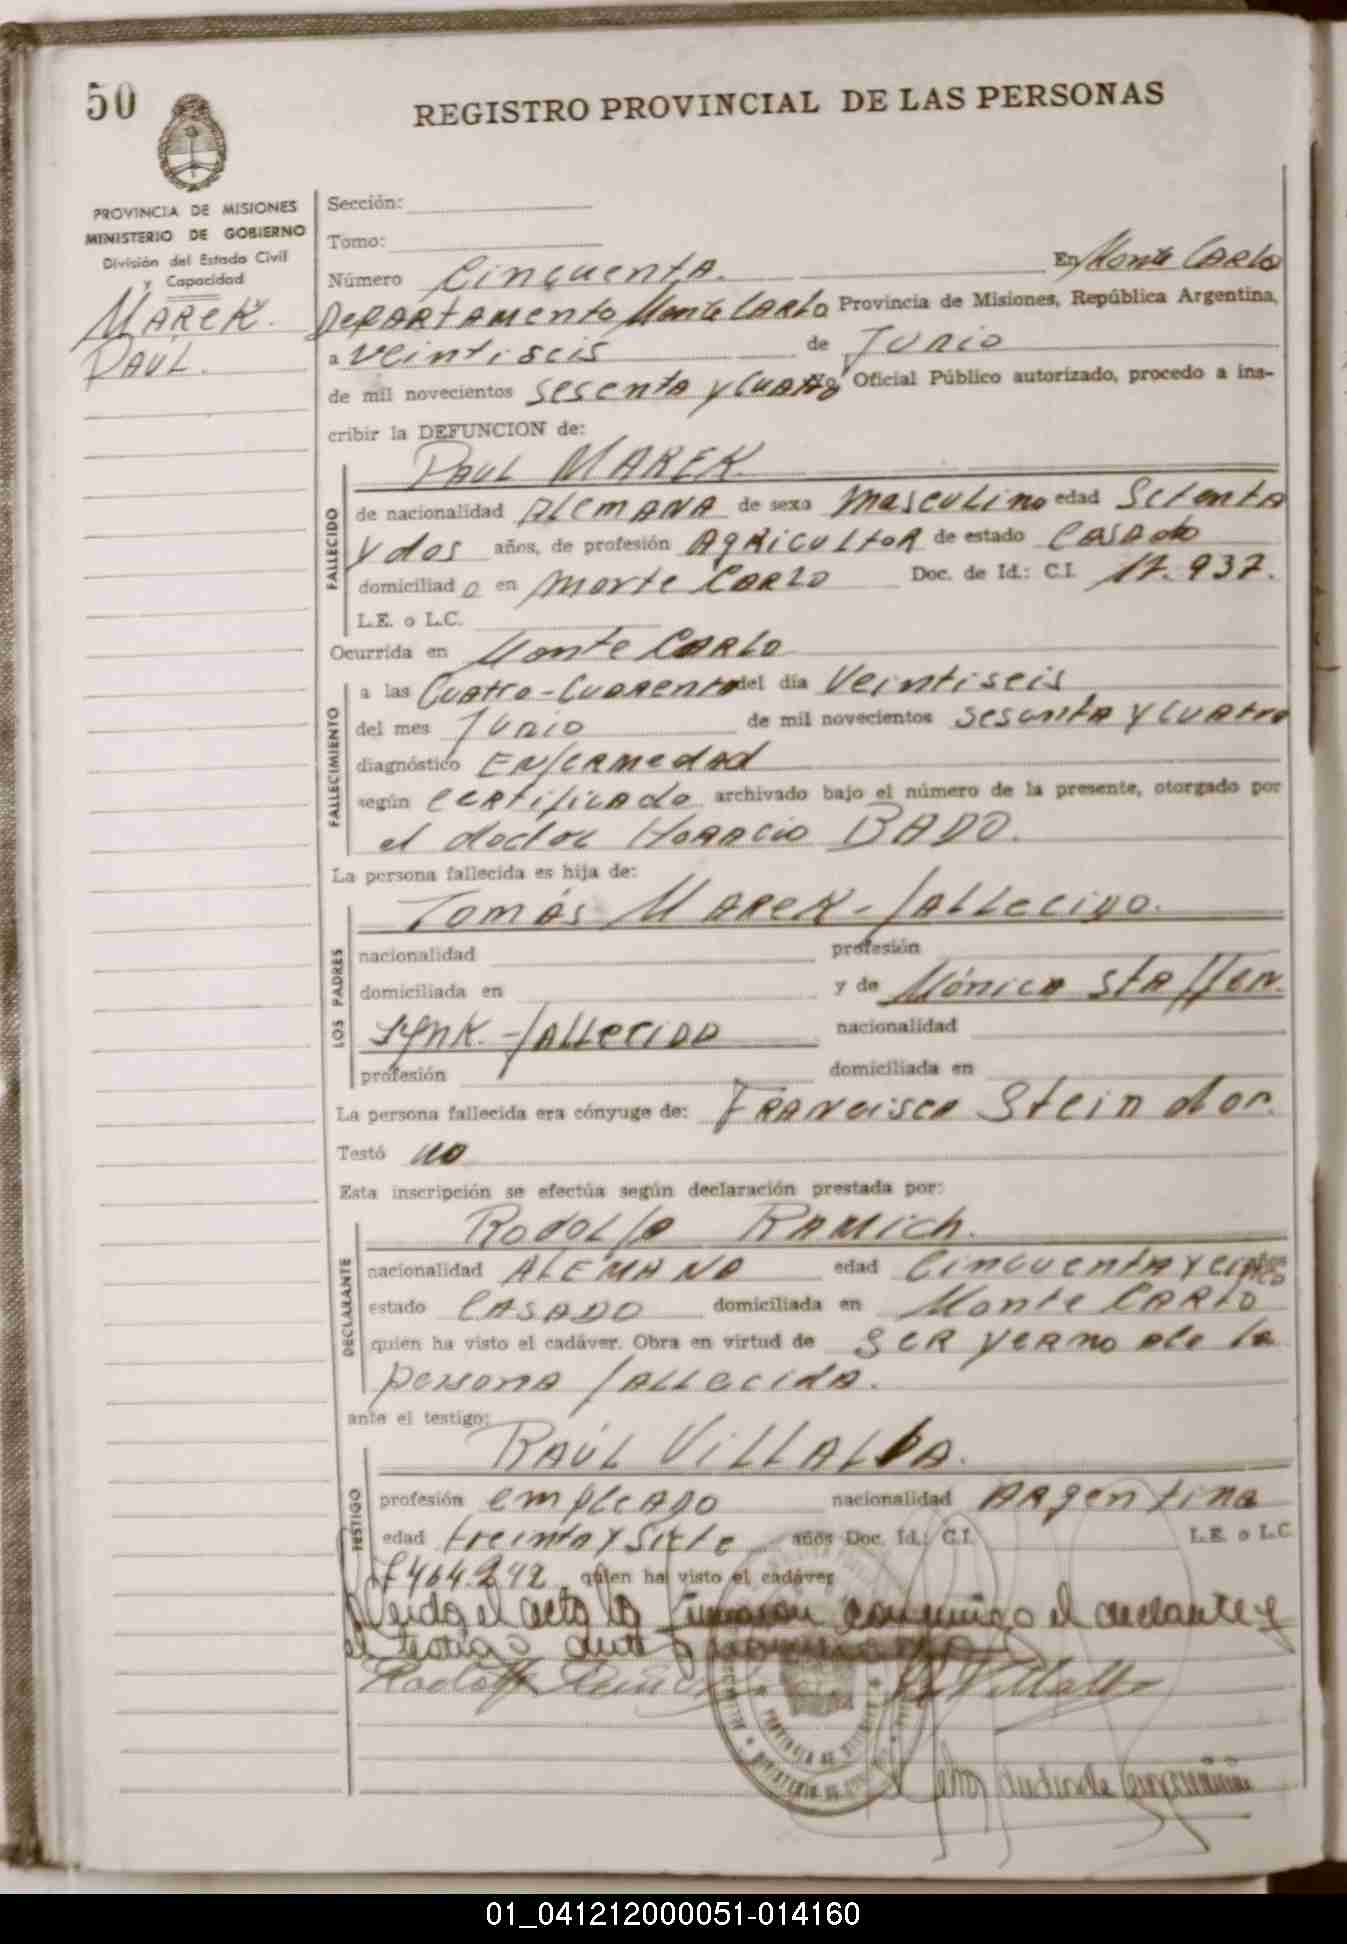 50
REGISTRO PROVINCIAL DE LAS PERSONAS
PROVINCIA DE MISIONES
MINISTERIO DE GOBIERNO
División del Estado Civil
y Capacidad
MAREK.
PAUL.
Sección:
Tomo:
Número Cincuenta. En Monte Carlo
Departamento Monte Carlo Provincia de Misiones, República Argentina,
a veintiseis de Junio
de mil novecientos sesenta y cuatro Yo, Oficial Público autorizado, procedo a ins-
cribir la DEFUNCION de:
PAUL MAREK
FALLECIDO
de nacionalidad Alemana de sexo masculino edad Setenta
y dos años, de profesión Agricultor de estado Casado
domiciliado en Monte Carlo Doc. de Id.: C.I. 17.937.
L.E. o L.C.
Ocurrida en Monte Carlo
FALLECIMIENTO
a las Cuatro-Cuarenta del día Veintiseis
del mes Junio de mil novecientos sesenta y cuatro
diagnóstico Enfermedad
según Certificado archivado bajo el número de la presente, otorgado por
el doctor Horacio BADO.
La persona fallecida es hija de:
LOS PADRES
Tomás Marek - fallecido.
nacionalidad profesión
domiciliada en y de Mónica Staffen
- fallecido nacionalidad
profesión domiciliada en
La persona fallecida era cónyuge de: Francisca Stein dor.
Testó no
Esta inscripción se efectúa según declaración prestada por:
DECLARANTE
Rodolfo Ramich.
nacionalidad Alemano edad Cincuenta y
estado Casado domiciliada en Monte Carlo
quien ha visto el cadáver. Obra en virtud de ser yerno de la
persona fallecida.
ante el testigo:
TESTIGO
Raúl Villalba.
profesión empleado nacionalidad Argentina
edad treinta y siete años Doc. Id.: C.I. L.E. o L.C.
7464.242 quien ha visto el cadáver
Leida el acta la firmaron conmigo el declarante y
el testigo
01_041212000051-014160